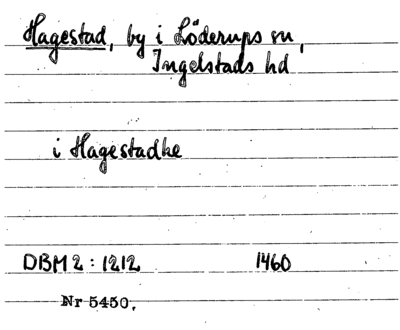 Hagestad, by i Löderups sn,
Ingelstads hd
i Hagestadhe
DBM 2 : 1212 1460
Nr 5450.